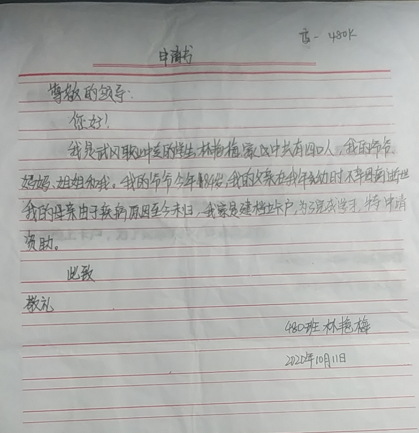 店-480k
申请书
尊敬的领导:
你好!
我是武冈职业中专的学生林艳梅,家中共有四口人,我的爷爷,
妈妈,姐姐和我。我的爷爷今年84岁,我的父亲在我年幼时不幸因病逝世
我的母亲由于疾病原因至今未归,我家是建档立卡户,为了完成学业,特申请
资助。
此致
敬礼
480班 林艳梅
2020年10月11日